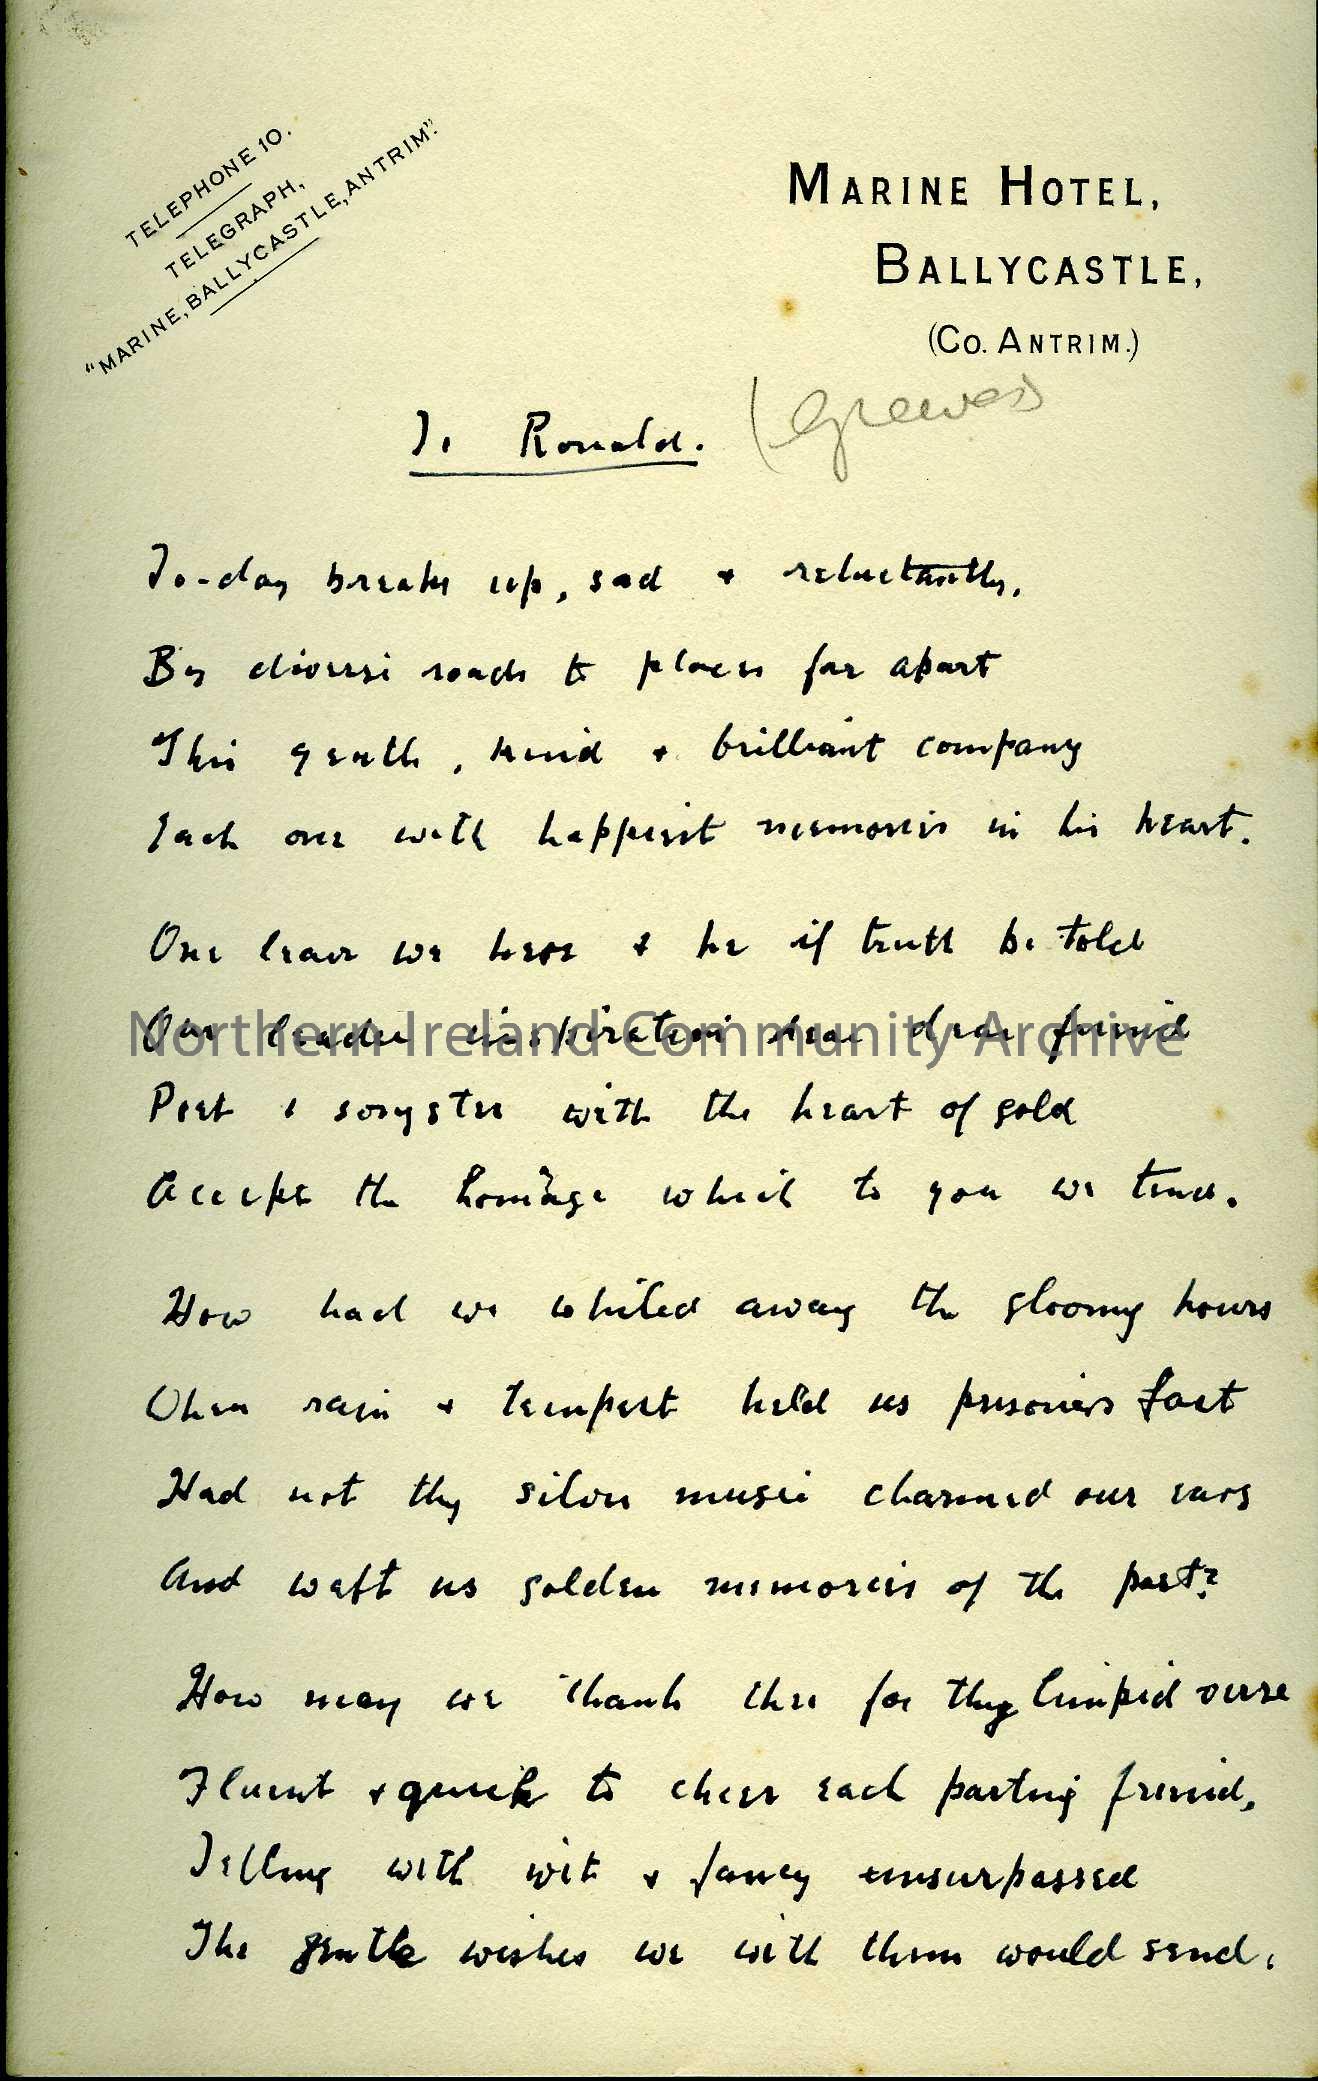 TELEPHONE 10.
TELEGRAPH,
"MARINE, BALLYCASTLE, ANTRIM".
MARINE HOTEL,
BALLYCASTLE,
(CO. ANTRIM.)
To Ronald. (Greeves
To-day breaks up, sad & reluctantly,
By diverse roads to places far apart
This gentle, kind & brilliant company
Each one with happiest memories in his heart.
One leave we here & he if truth be told
Our leader inspiration dear friend
Poet & songster with the heart of gold
Accept the homage which to you we tend.
How had we whiled away the gloomy hours
When rain & tempest held us prisoners fast
Had not thy silver music charmed our ears
And waft us golden memories of the past?
How may we thank thee for thy limpid verse
Fluent & quick to cheer each parting friend,
Telling with wit & fancy unsurpassed
The gentle wishes we with them would send.
Northern Ireland Community Archive